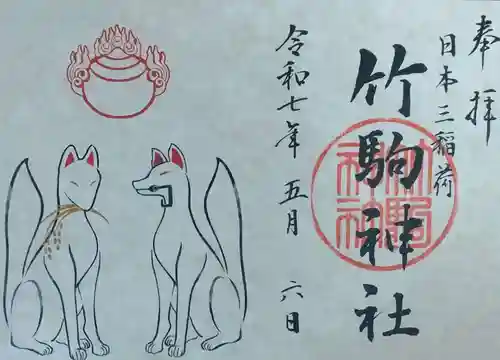 奉拝
日本三稲荷
竹駒神社
令和七年 五月 六日